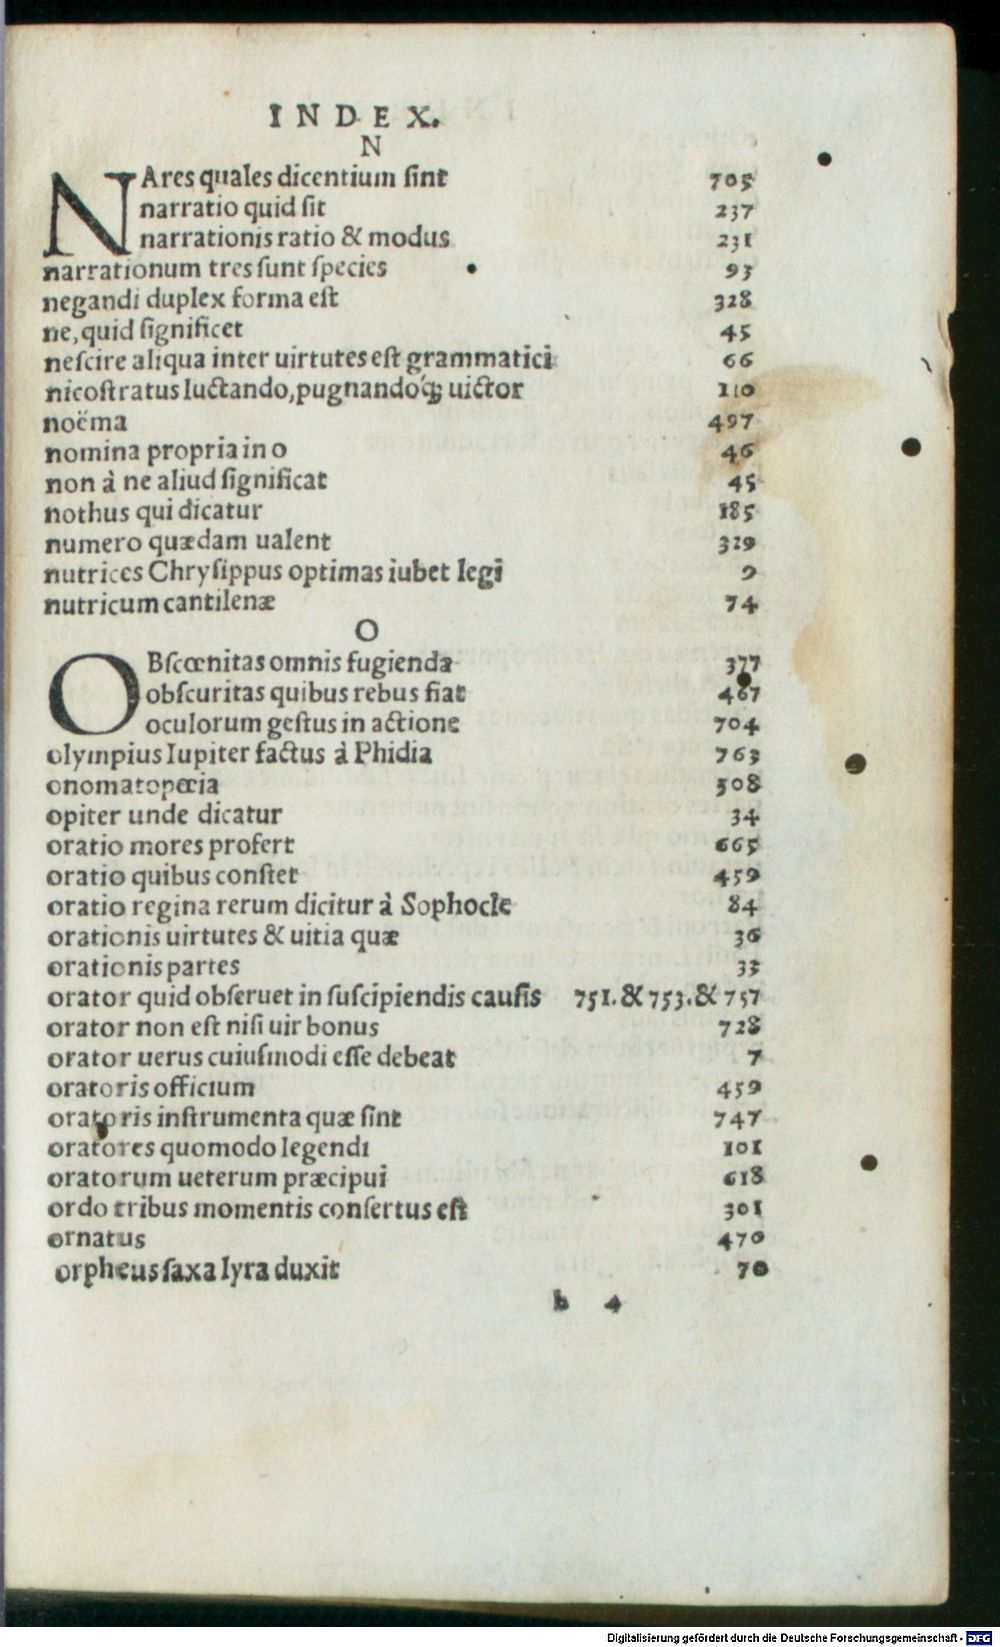 INDEX.
N
NAres quales dicentium sint 705
narratio quid sit 237
narrationis ratio & modus 231
narrationum tres sunt species 93
negandi duplex forma est 328
ne, quid significet 45
nescire aliqua inter uirtutes est grammatici 66
nicostratus luctando, pugnandoq́; uictor 110
noëma 497
nomina propria in o 46
non à ne aliud significat 45
nothus qui dicatur 185
numero quædam ualent 329
nutrices Chrysippus optimas iubet legi 9
nutricum cantilenæ 74
O
OBscœnitas omnis fugienda 377
obscuritas quibus rebus fiat 467
oculorum gestus in actione 704
olympius Iupiter factus à Phidia 763
onomatopœia 508
opiter unde dicatur 34
oratio mores profert 665
oratio quibus constet 459
oratio regina rerum dicitur à Sophocle 84
orationis uirtutes & uitia quæ 36
orationis partes 33
orator quid obseruet in suscipiendis causis 751. & 753. & 757
orator non est nisi uir bonus 728
orator uerus cuiusmodi esse debeat 7
oratoris officium 459
oratoris instrumenta quæ sint 747
oratores quomodo legendi 101
oratorum ueterum præcipui 618
ordo tribus momentis consertus est 301
ornatus 470
orpheus saxa lyra duxit 70
b 4
Digitalisierung gefördert durch die Deutsche Forschungsgemeinschaft - DFG